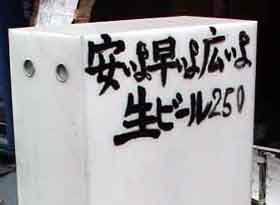 安いよ早いよ広いよ
生ビール250